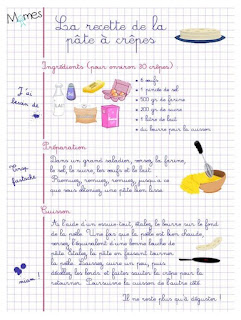 Momes
La recette de la
pâte à crêpes
Ingrédients (pour environ 30 crêpes)
J'ai
besoin de
• 6 œufs
• 1 pincée de sel
• 500 gr de farine
• 200 gr de sucre
• 1 litre de lait
• du beurre pour la cuisson
Préparation
Dans un grand saladier, versez la farine,
le sel, le sucre, les œufs et le lait.
Remuez, remuez, remuez, jusqu'à ce
que vous obteniez une pâte bien lisse.
Trop
fastoche
Cuisson
A l'aide d'un essuie-tout, étalez le beurre sur le fond
de la poêle. Une fois que la poêle est bien chaude,
versez l'équivalent d'une bonne louche de
pâte. Etalez la pâte en faisant tourner
la poêle. Laissez cuire un peu, puis
décollez les bords et faites sauter la crêpe pour la
retourner. Poursuivre la cuisson de l'autre côté.
miam !
Il ne reste plus qu'à déguster !